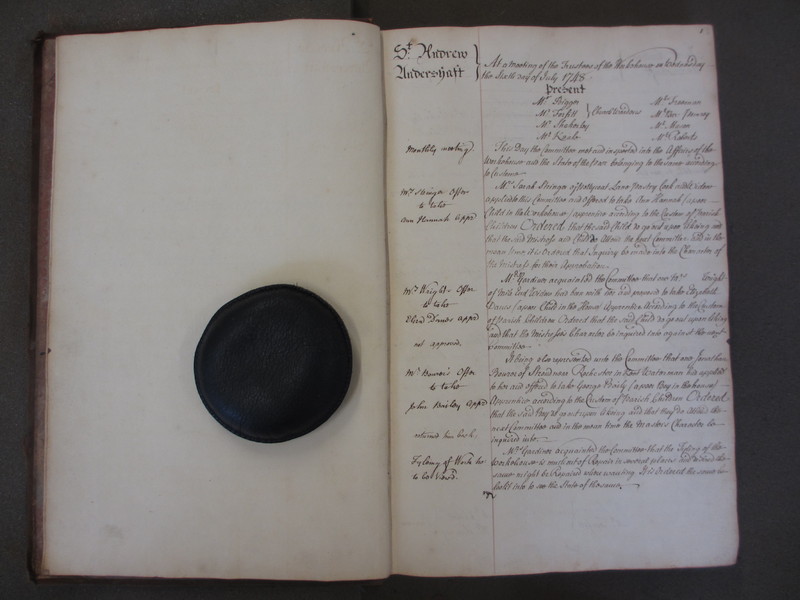 1
St. Andrew
Undershaft
At a Meeting of the Trustees of the Workhouse on Wednesday
the Sixth day of July 1748
Present
Mr. Briggs Mr. Freeman
Mr. Forfitt Churchwardens
Mr. Shakerley Mr. Mason
Mr. Roberts
Monthly meeting.
This Day the Committee met and inquired into the Affairs of the
Workhouse and the State of the Poor belonging to the same according
to Custom
Mrs. Stringer Offer
to take
Ann Hannah Appr.
Mrs. Sarah Stringer of Pastry Cook
applied to this Committee and offered to take Ann Hannah a poor
Child in the Workhouse Apprentice according to the Custom of Parish
Children Ordered that the said Child do go out upon liking and
that the said Mistress and Child do attend the next Committee and in the
mean time it is Ordered that Inquiry be made into the Character of
the Mistress for their Approbation
Mrs. Wright Offer
to take
Eliza. Davis Appr.
not approved.
Mrs. Gardiner acquainted the Committee that one Mrs. Wright
of Mile End Widow has been with her and proposed to take Elizabeth
Davis a poor Child in the House Apprentice According to the Custom
of Parish Children Ordered that the said Child do go out upon liking
and that the Mistresses Character be inquired into against the next
Committee
It being also represented unto the Committee that one Jonathan
Mr. Bowers Offer
to take
John Appr.
returned him back.
of Rochester in Kent Waterman has applied
to her and offered to take George a poor Boy in the house
Apprentice according to the Custom of Parish Children Ordered
that the said Boy do go out upon liking and that they do attend the
next Committee and in the mean time the Masters Character be
inquired into
Tyleing of Work ho.
to be viewed.
Mrs. Gardiner acquainted the Committee that the Tyleing of the
Workhouse is much out of Repair in several places and desired the
same might be Repaired where wanting. It is Ordered the same be
look'd into to see the State of the same